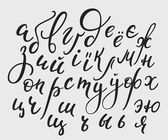 а б в г д е ё ж
з и й і к л м н
о п р с т у ў ф х
ц ч ш щ ъ ы ь э ю
я